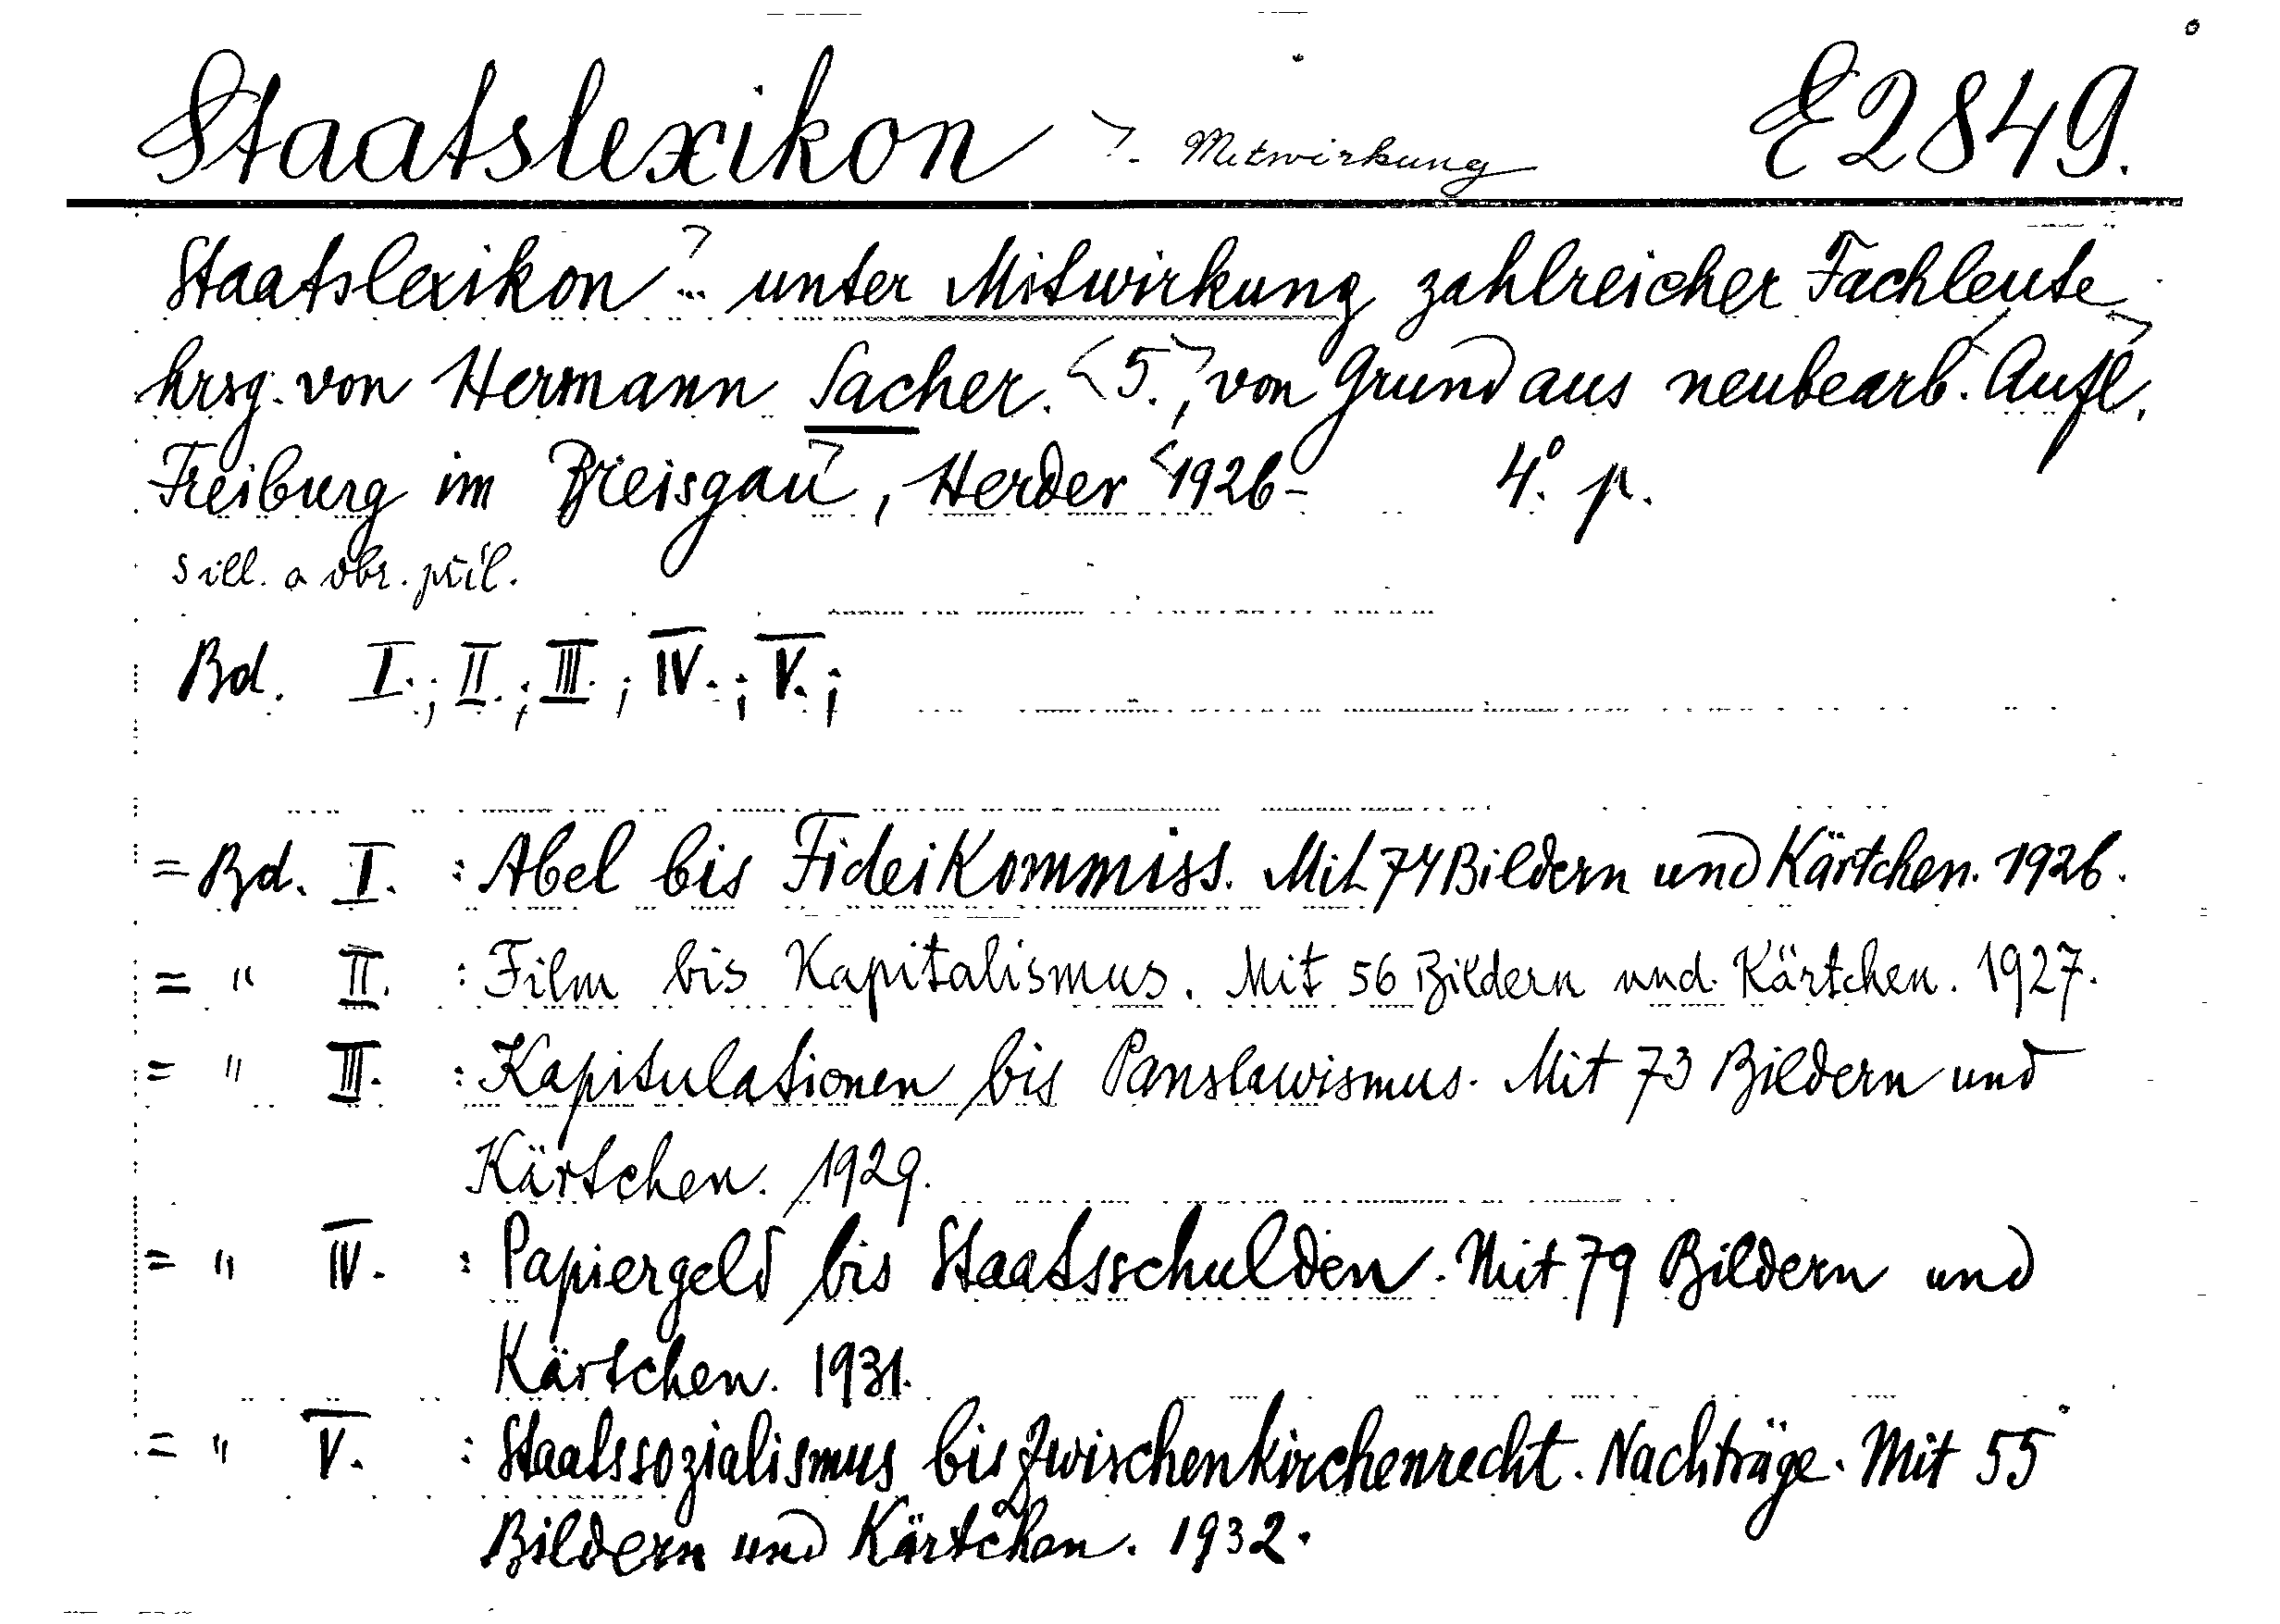 Staatslexikon ?. Mitwirkung E 2849.
Staatslexikon ?... unter Mitwirkung zahlreicher Fachleute
hrsg. von Hermann Sacher. <5.>, von Grund aus neubearb. <Aufl.>
Freiburg im Breisgau, Herder <1926- 4° p.
s ill. a obr. příl.
Bd. I.; II.; III.; IV.; V.;
= Bd. I. : Abel bis Fideikommiss. Mit 74 Bildern und Kärtchen. 1926.
= " II. : Film bis Kapitalismus. Mit 56 Bildern und Kärtchen. 1927.
= " III. : Kapitulationen bis Panslawismus. Mit 73 Bildern und
Kärtchen. 1929.
= " IV. : Papiergeld bis Staatsschulden. Mit 79 Bildern und
Kärtchen. 1931.
= " V. : Staatssozialismus bis Zwischenkirchenrecht. Nachträge. Mit 55
Bildern und Kärtchen. 1932.